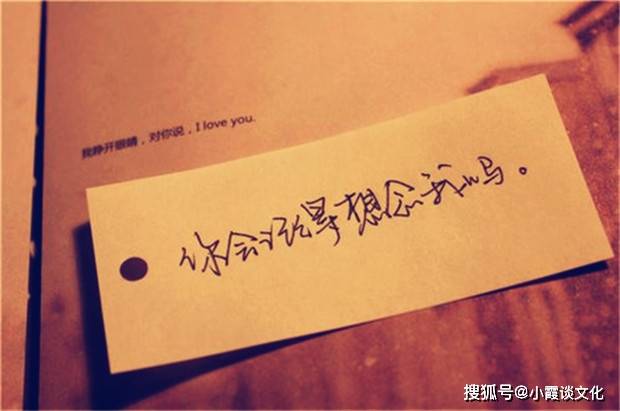 我睁开眼睛，对你说，I love you.
你会记得想念我吗。
搜狐号@小霞谈文化